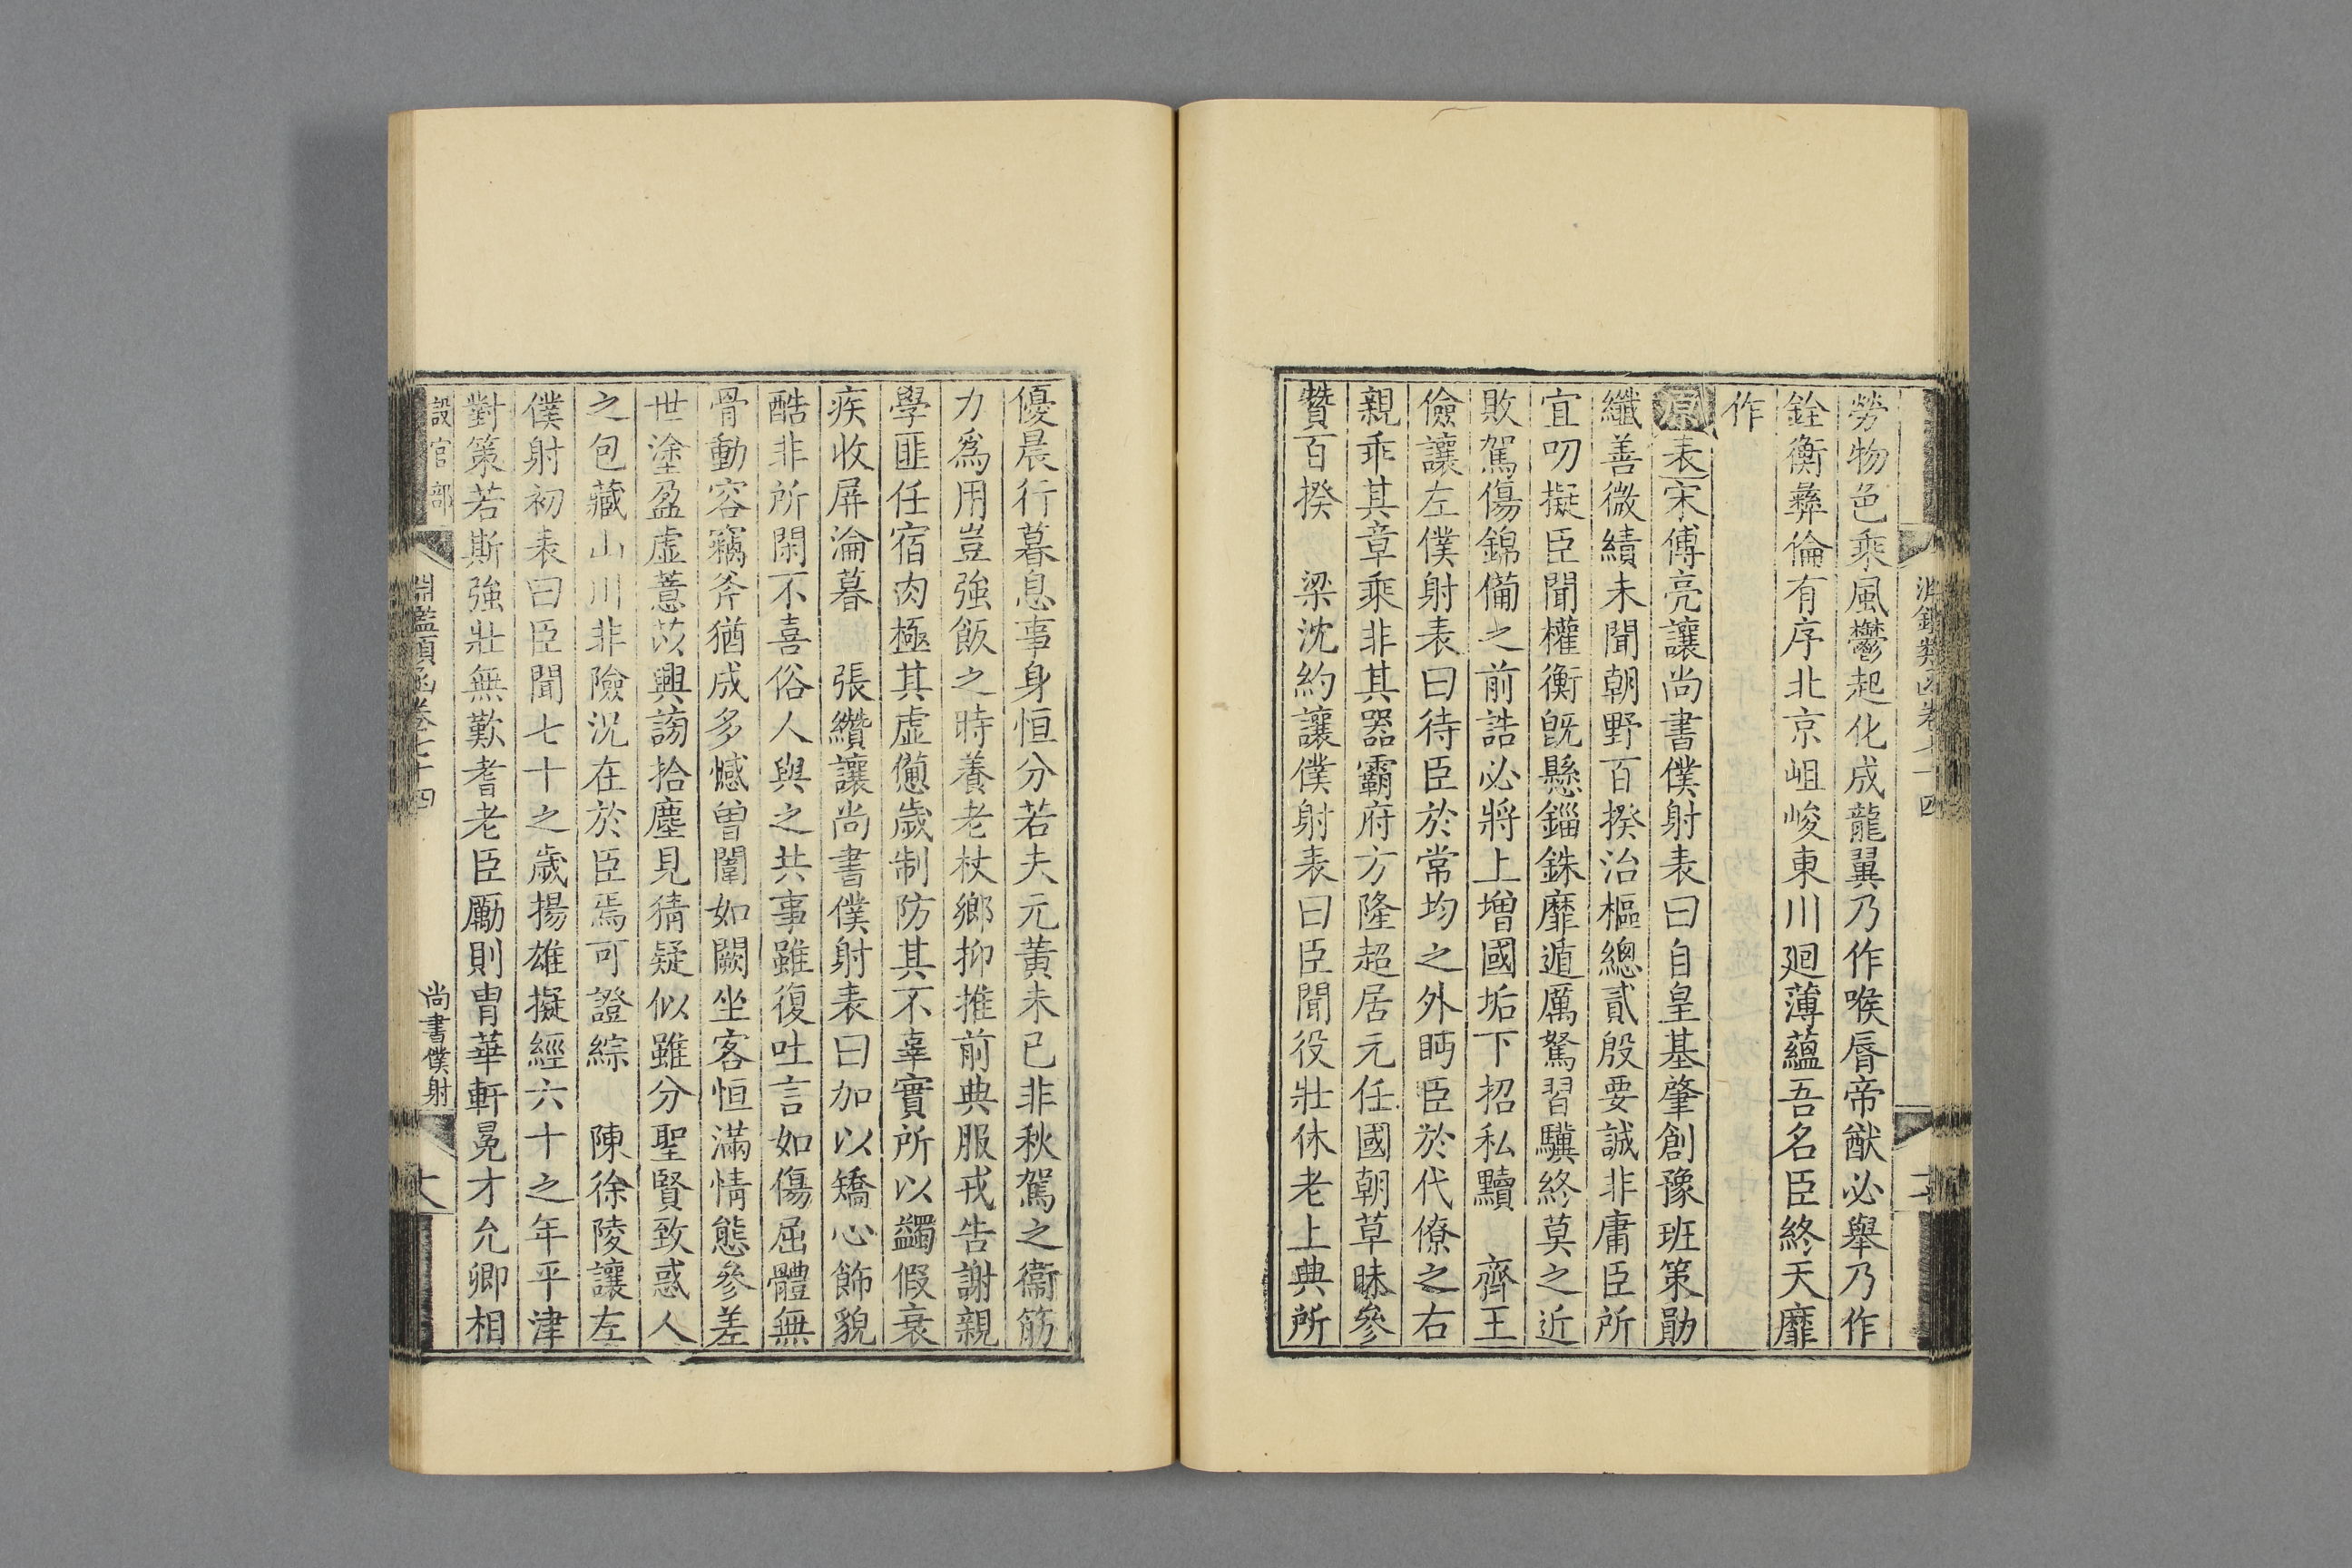 勞物色乘風鬱起化成龍翼乃作喉脣帝猷必舉乃作
銓衡彝倫有序北京岨峻東川廻薄蘊吾名臣終天靡
作
原表宋傅亮讓尚書僕射表曰自皇基肇創豫班策勛
纖善微績未聞朝野百揆治樞總貳殷要誠非庸臣所
宜叨擬臣聞權衡旣懸錙銖靡遁厲駑習驥終莫之近
敗駕傷錦備之前誥必將上增國垢下招私黷　齊王
儉讓左僕射表曰待臣於常均之外眄臣於代僚之右
親乖其章章乘非其器霸府方隆超居元任國朝草昧參
贊百揆　梁沈約讓僕射表曰臣聞役壯休老上典所
優晨行暮息事身恒分若夫元黃未已非秋駕之衞筋
力爲用豈強飯之時養老杖鄉抑推前典服戎告謝親
學匪任宿肉極其虛憊歲制防其不辜實所以蠲假衰
疾收屏淪暮　張纘讓尚書僕射表曰加以矯心飾貌
酷非所閑不喜俗人與之共事雖復吐言如傷屈體無
骨動容竊斧猶成多憾曾闈如闕坐客恒滿情態參差
世塗盈虛薏苡興謗拾塵見猜疑似雖分聖賢致惑人
之包藏山川非險況在於臣焉可證綜　陳徐陵讓左
僕射初表曰臣聞七十之歲揚雄擬經六十之年平津
對策若斯強壯無歎耆老臣勵則冑華軒冕才允卿相
設官部　淵鑑類函卷七十四　尚書僕射